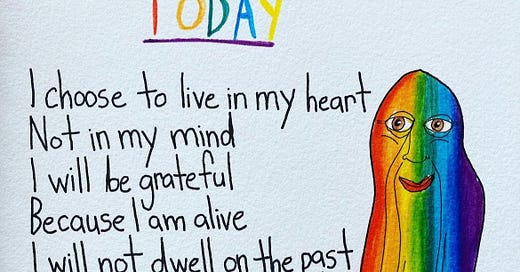 TODAY
I choose to live in my heart
Not in my mind
I will be grateful
Because I am alive
I will not dwell on the past